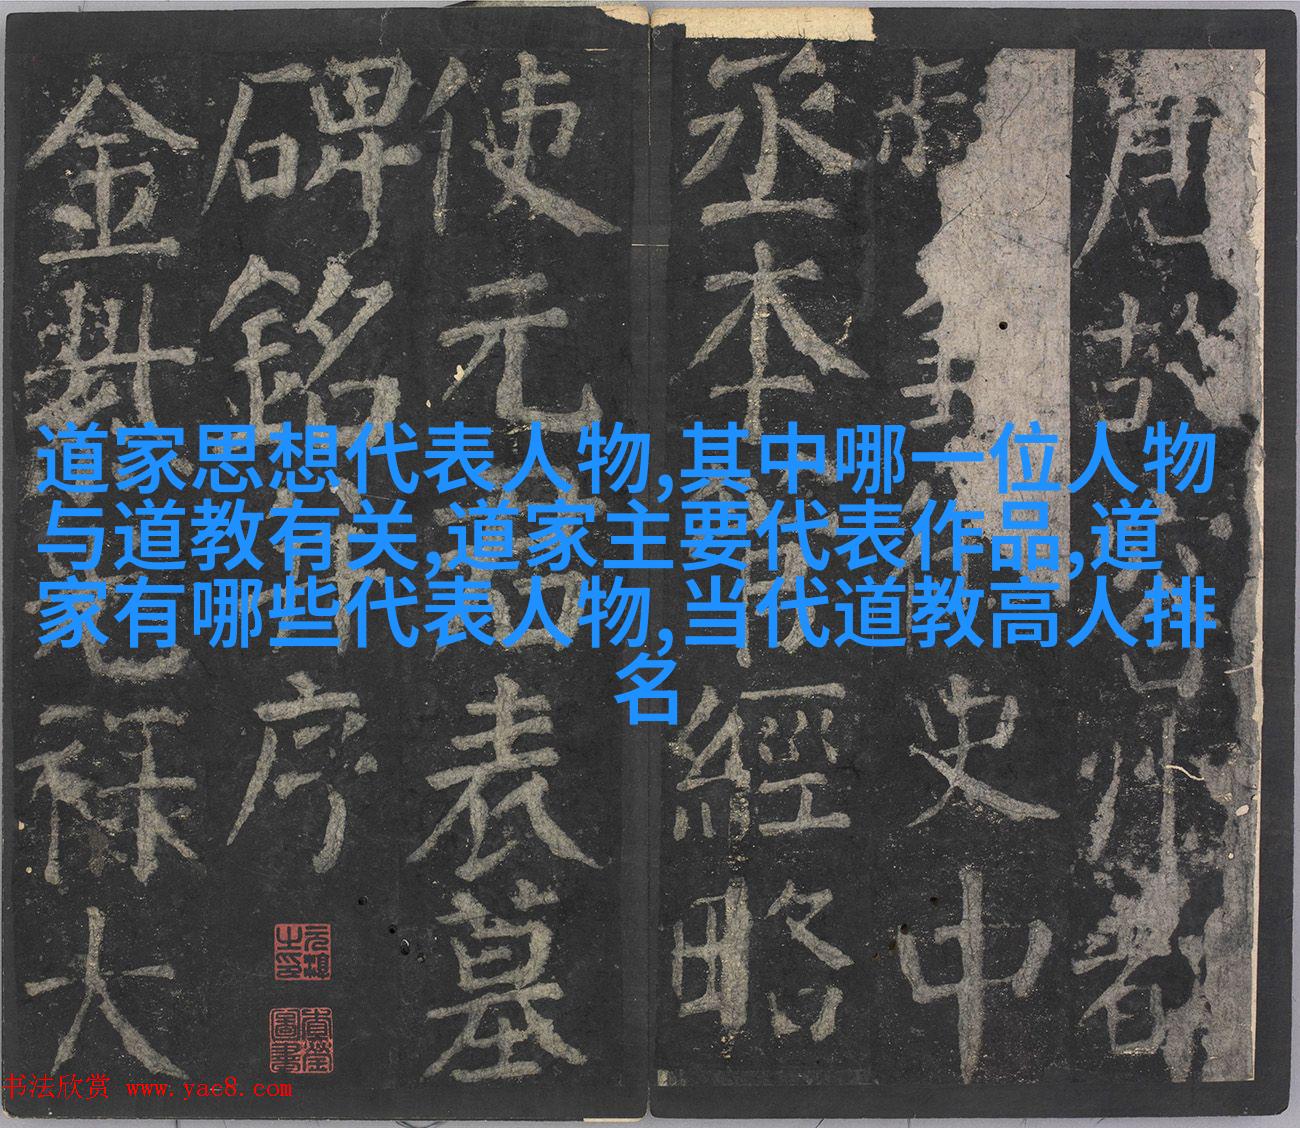 道家思想代表人物,其中哪一位人物
与道教有关,道家主要代表作品,道
家有哪些代表人物,当代道教高人排
名
故州都
史中
丞本經略
使元表墓
碑銘序
金祿大
书法欣赏 www.yac8.com